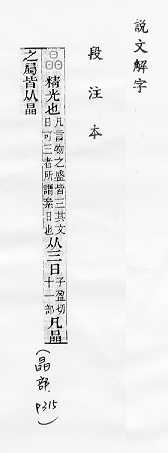 說文解字
段注本
晶 精光也 凡言物之盛皆三其文日可三者所謂絫日也 从三日 子盈切十一部 凡晶
之屬皆从晶
(晶部 P315)